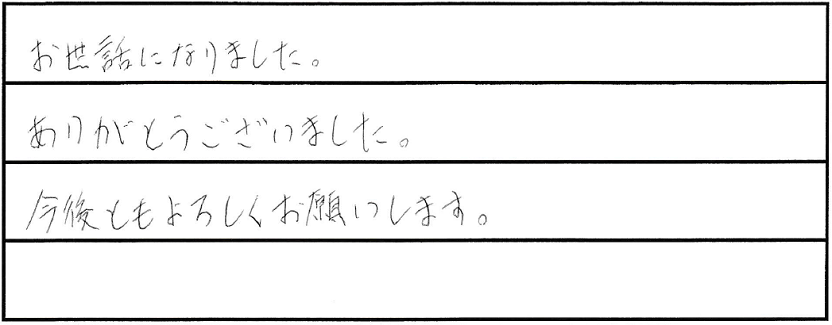 お世話になりました。
ありがとうございました。
今後ともよろしくお願いします。